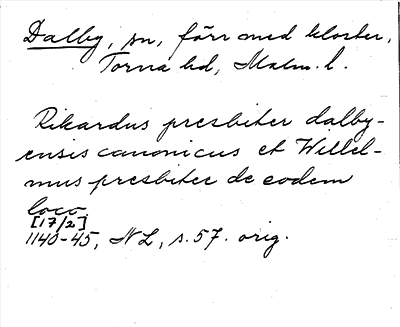 Dalby, sn, förr med kloster,
Torna hd, Malm. l.
Rikardus presbiter dalby-
ensis canonicus et Willel-
mus presbiter de eodem
loco
[17/2]
1140-45, NL, s. 57. orig.